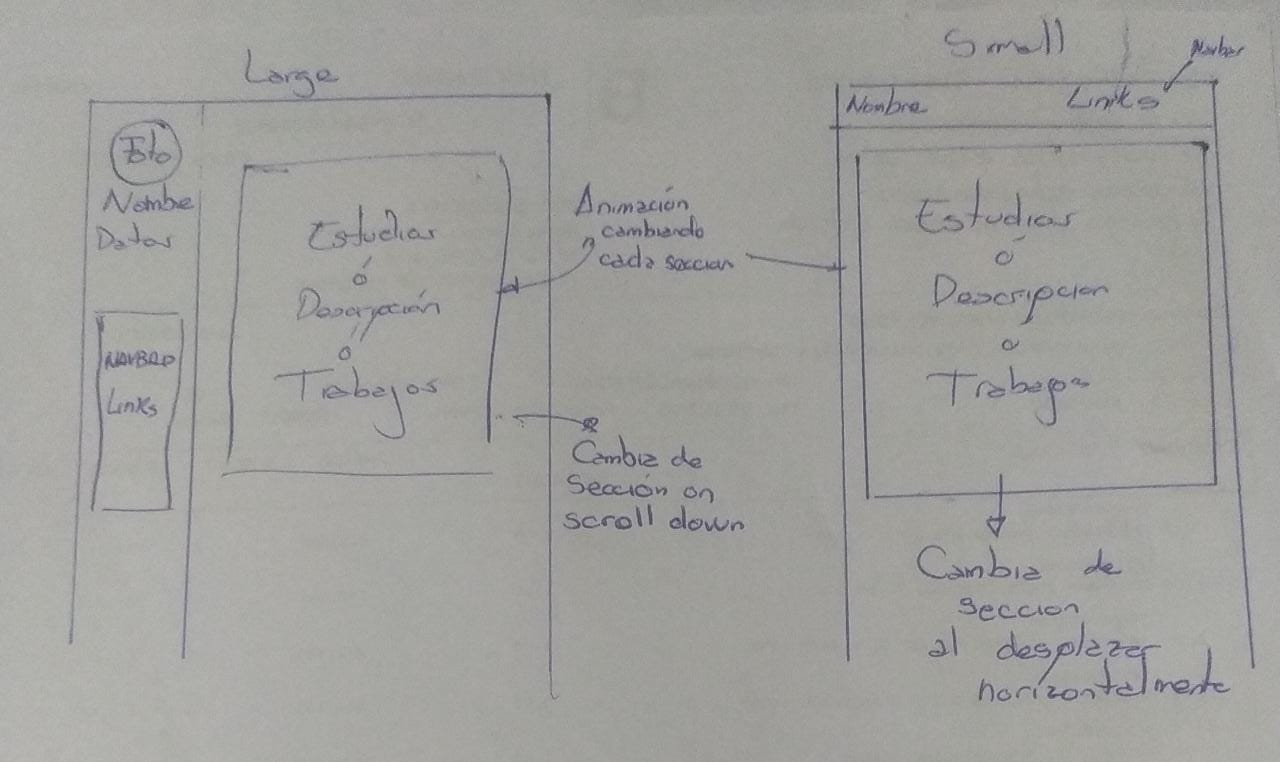 Large
Foto
Nombre
Datos
NAVBAR
Links
Estudios
ó
Descripción
ó
Trabajos
Animación
cambiando
cada seccion
Cambia de
Sección on
scroll down
Small
Navbar
Nombre
Links
Estudios
ó
Descripcion
o
Trabajos
Cambia de
seccion
al desplazar
horizontalmente